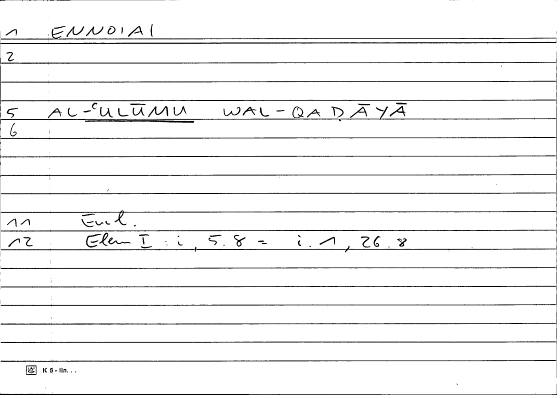 1 ENNOIAI
2
5 AL-ʿULŪMU WAL-QAḌĀYĀ
6
11 Eucl.
12 Elem I : i, 5.8 = i. 1, 26.8
K 5 - lin. . .